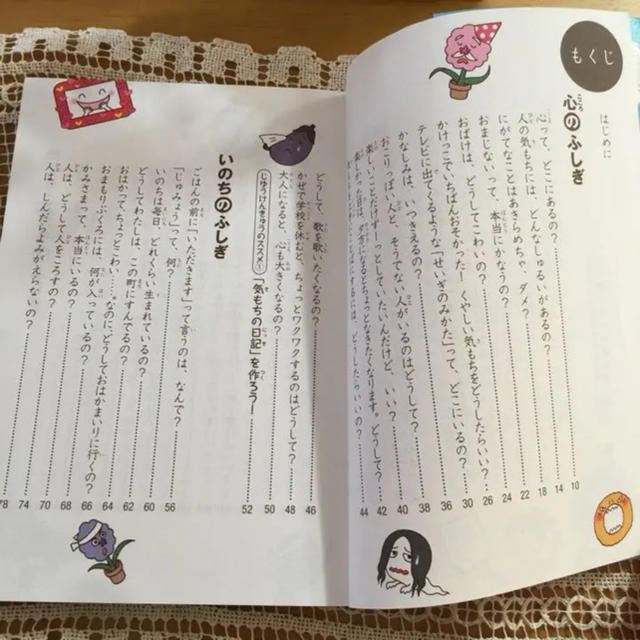 もくじ
はじめに
心のふしぎ
心って、どこにあるの? 10
人の気もちには、どんなしゅるいがあるの? 14
にがてなことはあきらめちゃ、ダメ? 18
おまじないって、本当にかなうの? 22
おばけは、どうしてこわいの? 24
かけっこでいちばんおそかった!くやしい気もちをどうしたらいい? 26
テレビに出てくるような「せいぎのみかた」って、どこにいるの? 30
かなしみは、いつきえるの? 36
おこりっぽい人と、そうでない人がいるのはどうして? 38
楽しいことだけずーっとしていたいんだけど、いい? 40
楽しかった日は、夕方になるとちょっとなきたくなります。どうして? 42
44
どうして、歌を歌いたくなるの? 46
かぜで学校を休むと、ちょっとワクワクするのはどうして? 48
大人になると、心も大きくなるの? 50
じゆうけんきゅうのススメ① 「気もちの日記」を作ろう! 52
いのちのふしぎ
ごはんの前に「いただきます」って言うのは、なんで? 56
「じゅみょう」って、何? 60
いのちは毎日、どれくらい生まれているの? 62
どうしてわたしは、この町にすんでるの? 64
おはかってちょっとこわい……。なのに、どうしておはかまいりに行くの? 66
おまもりぶくろには、何が入っているの? 68
かみさまって、本当にいるの? 70
人は、どうして人をころすの? 74
人は、しんだらよみがえらないの? 78